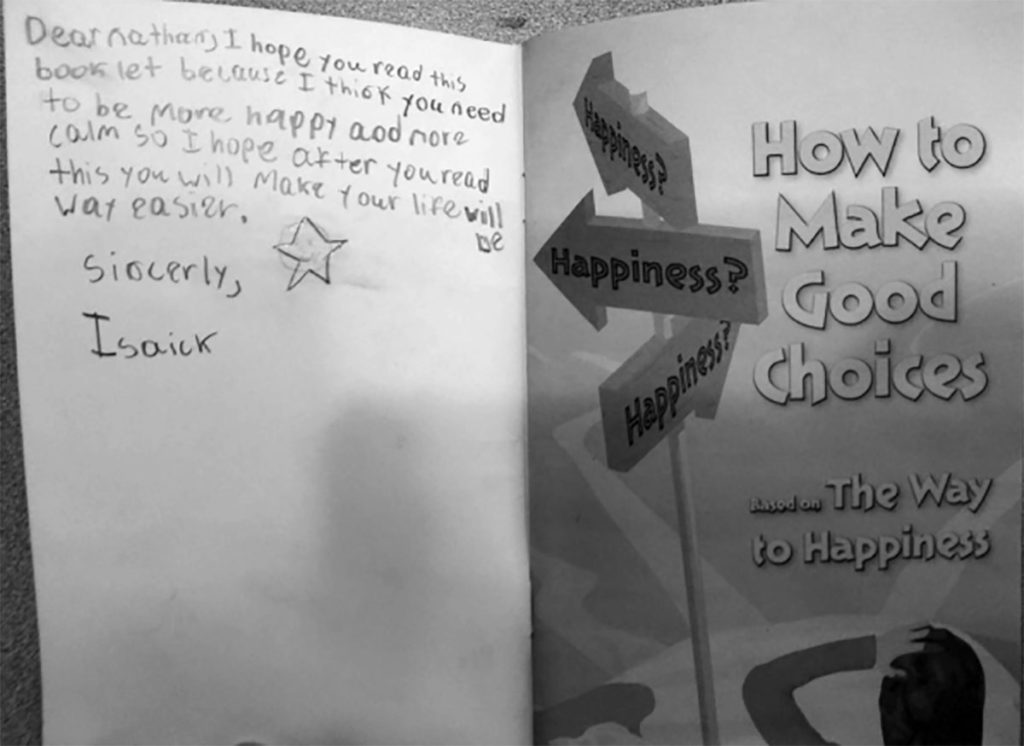 Dear nathan, I hope you read this
booklet because I thick you need
to be more happy aod more
calm so I hope after you read
this you will make your life will
be
way easier.
siocerly,
Isaick
Happiness?
Happiness?
Happiness?
How to
Make
Good
Choices
Based on The Way
to Happiness